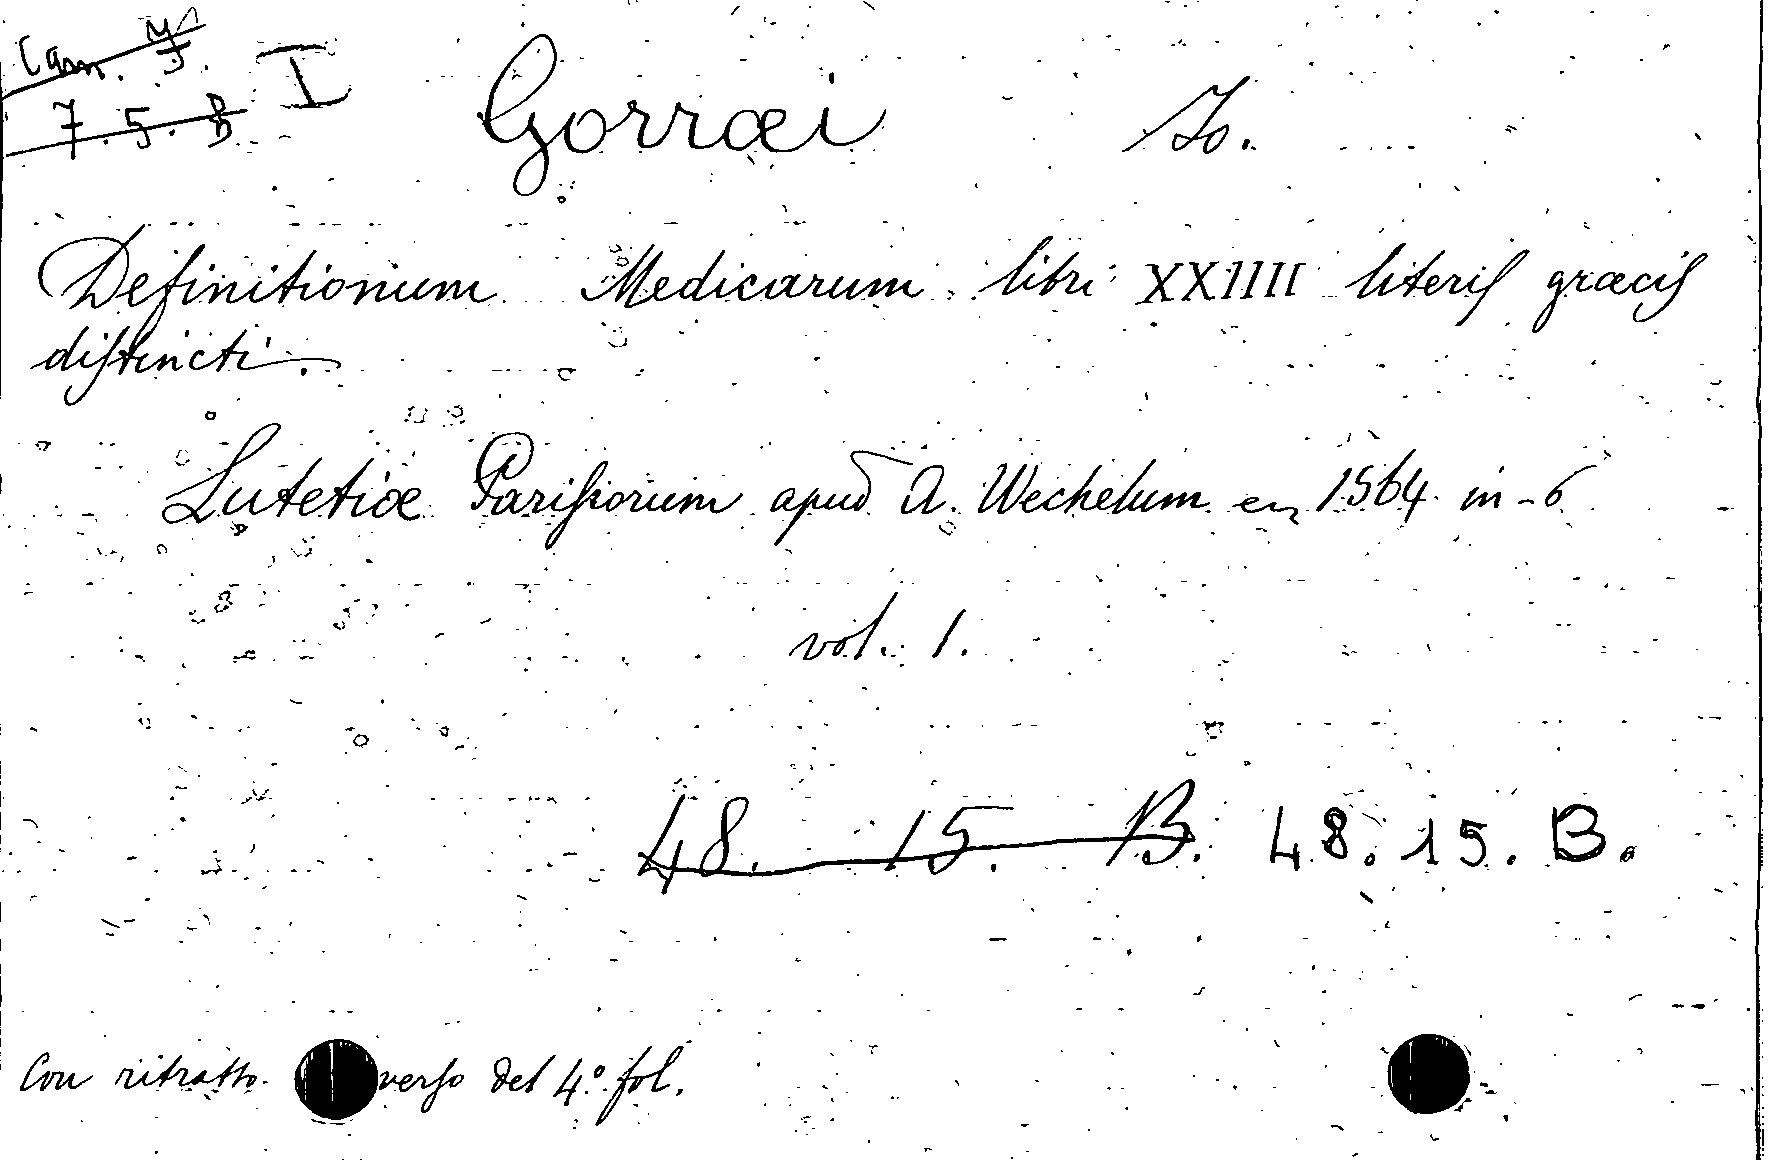 Cam. I
7. 5. B I
Gorræi Io.
Definitionum Medicarum libri XXIIII literis græcis
distincti.
Lutetiæ Parisiorum apud A. Wechelum en 1564 in-6
vol. 1.
48. 15. B. 48. 15. B.
Con ritratto verso del 4.º fol.